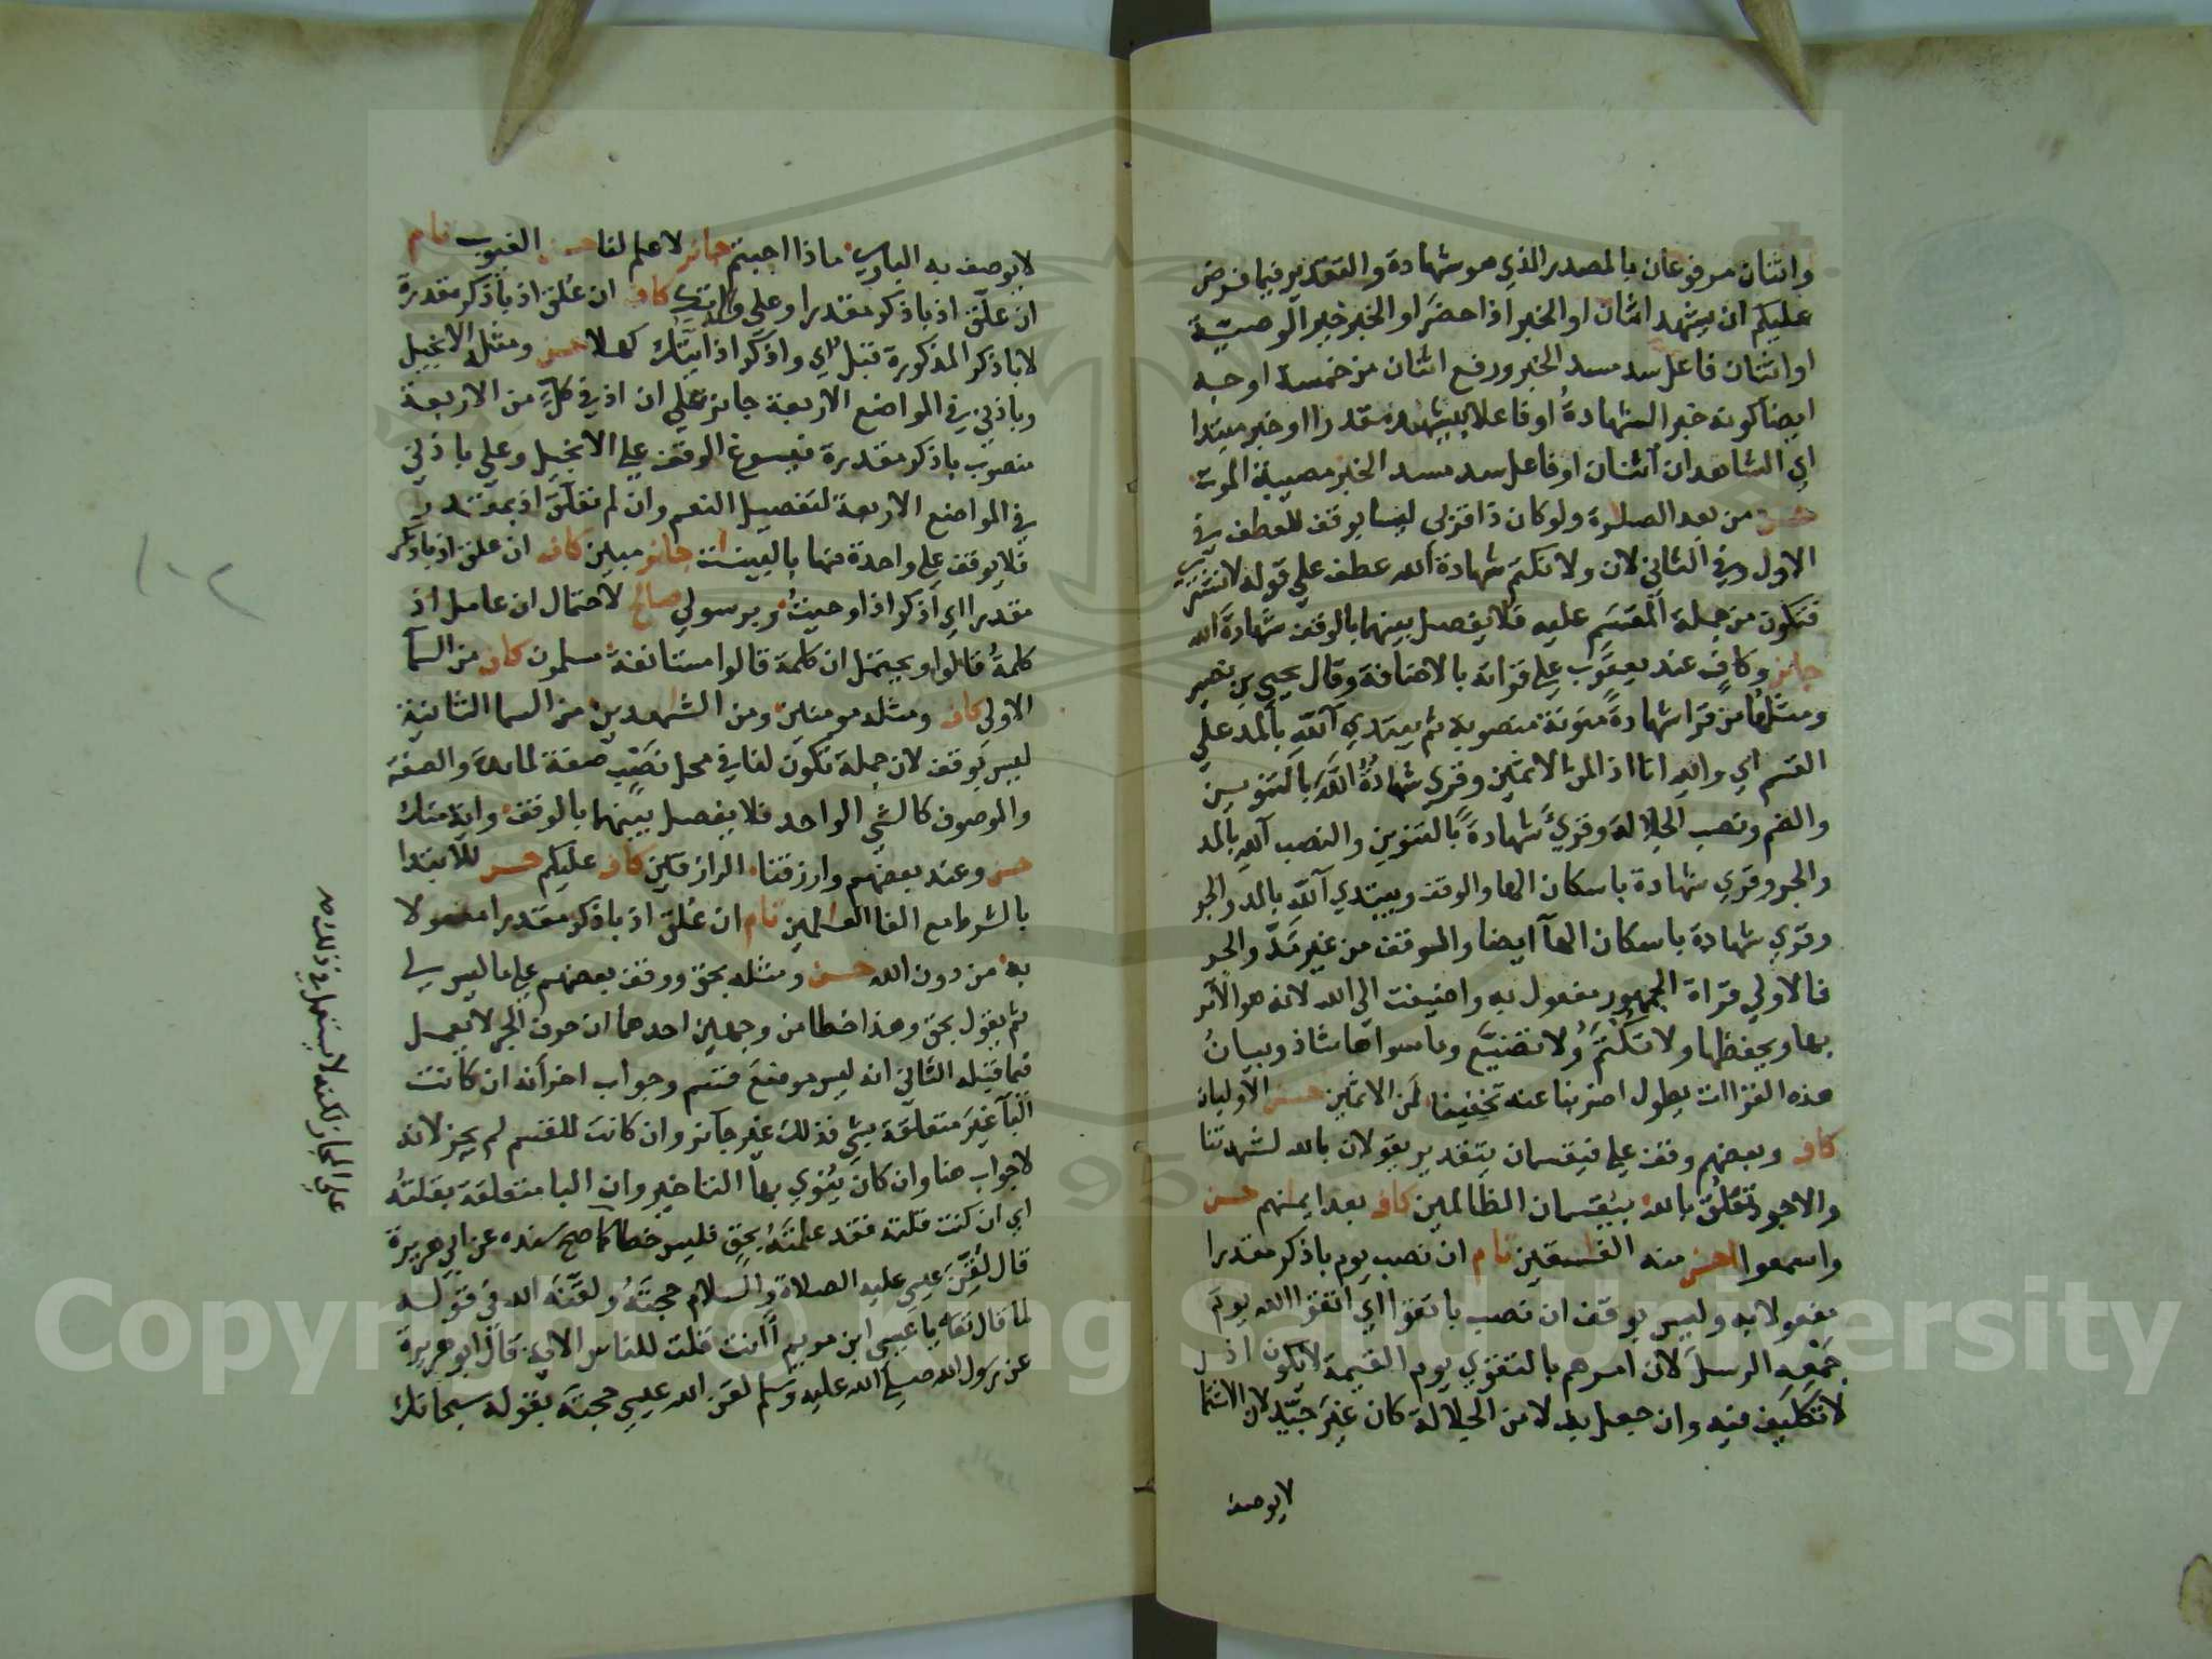 واثنان مرفوعان بالمصدر الذي هو شهادة والتقدير فيما فرض
عليكم ان يشهد اثنان او الخبر اذا حضر او الخبر خبر الوصية
او اثنان فاعل سد مسد الخبر ورفع اثنان من خمسة اوجه
ايضا كونه خبر الشهادة او فاعلا بيشهد مقدرا او خبر مبتدا
اي الشاهدان اثنان او فاعل سد مسد الخبر مصيبة الموت
حسن من بعد الصلوة ولو كان ذا قربى ليسا بوقف للعطف في
الاول وفي الثاني لان ولا نكتم شهادة الله عطف على قوله لا نشتري
فتكون من جملة المقسم عليه فلا يفصل بينهما بالوقف شهادة الله
جائز وكاف عند يعقوب على قراته بالاضافة وقال يحيى بن نصير
ومثلها من قرا شهادة منونة منصوبة ثم يبتدي آلله بالمد على
القسم اي والله انا اذا لمن الاثمين وقري شهادة الله بالتنوين
والضم ونصب الجلالة وقرئ شهادة بالتنوين والنصب آلله بالمد
والجر وقري شهادة باسكان الها والوقف ويبتدي آلله بالمد والجر
وقري شهادة باسكان الهآ ايضا والوقف من غير مد والجر
فالاولى قراة الجمهور مفعول به واضيفت الى الله لانه هو الآمر
بها وبحفظها ولا تكتم ولا تضيع وما سواها شاذ وبيان
هذه القراات يطول اضربنا عنه تخفيفا لمن الاثمين حسن الاوليان
كاف وبعضهم وقف على فيقسمان بتقدير يقولان بالله لشهدتنا
والاجود تعلق بالله بيقسمان الظالمين كاف بعد ايمنهم حسن
واسمعوا احسن منه الفسقين تام ان نصب يوم باذكر مقدرا
مفعولا به وليس بوقف ان نصب باتقوا اي اتقوا الله يوم
جمعه الرسل لان امرهم بالتقوي يوم القيمة لا يكون اذ
لا تكليف فيه وان جعل بدلا من الجلالة كان غير جيد لان الاشتما
لا يوصف
لا يوصف به الباري ماذا اجبتم جائز لا علم لنا حسن الغيوب تام
ان علق اذ باذكر مقدرا وعلى والدتك كاف ان علق اذ باذكر مقدرة
لا باذكر المذكورة قبل اي واذكر اذ ايدتك كهلا حسن ومثله الانجيل
وباذني في المواضع الاربعة جائز على ان اذ في كل من الاربعة
منصوب باذكر مقدرة فيسوغ الوقف على الانجيل وعلى باذني
في المواضع الاربعة لتفصيل النعم وان لم تعلق اذ بمقدر
فلا يوقف على واحدة منها بالبينات جائز مبين كاف ان علق اذ باذكر
مقدرا اي اذكر اذ اوحيت وبرسولي صالح لاحتمال ان عامل اذ
كلمة قالوا ويحتمل ان كلمة قالوا مستانفة مسلمون كاف من السما
الاولى كاف ومثله مومنين ومن الشهدين من السما الثانية
ليس بوقف لان جملة تكون لنا في محل نصب صفة لمائدة والصفة
والموصوف كالشي الواحد فلا يفصل بينهما بالوقف واية منك
حسن وعند بعضهم وارزقنا الرازقين كاف عليكم حسن للابتدا
بالشرط مع الفا العلمين تام ان علق اذ باذكر مقدرا مفعولا
به من دون الله حسن ومثله بحق ووقف بعضهم على ما ليس لي
ثم يقول بحق وهذا خطا من وجهين احدهما ان حرف الجر لا يعمل
فيما قبله الثاني انه ليس موضع قسم وجواب اخر انه ان كانت
البآ غير متعلقة بشي فذلك غير جائز وان كانت للقسم لم يجز لانه
لا جواب هنا وان كان ينوي بها التاخير وان البا متعلقة بقلته
اي ان كنت قلته فقد علمته بحق فليس خطا كما صح سنده عن ابي هريرة
قال لقن عيسى عليه الصلاة والسلام حجته ولقنه الله في قوله
لما قال تعالى يا عيسى ابن مريم اانت قلت للناس الاية قال ابو هريرة
عن رسول الله صلى الله عليه وسلم لقن الله عيسى حجته بقوله سبحانك
على المجاز لكنه لا يستعمل في ذلك
Copyright © King Saud University